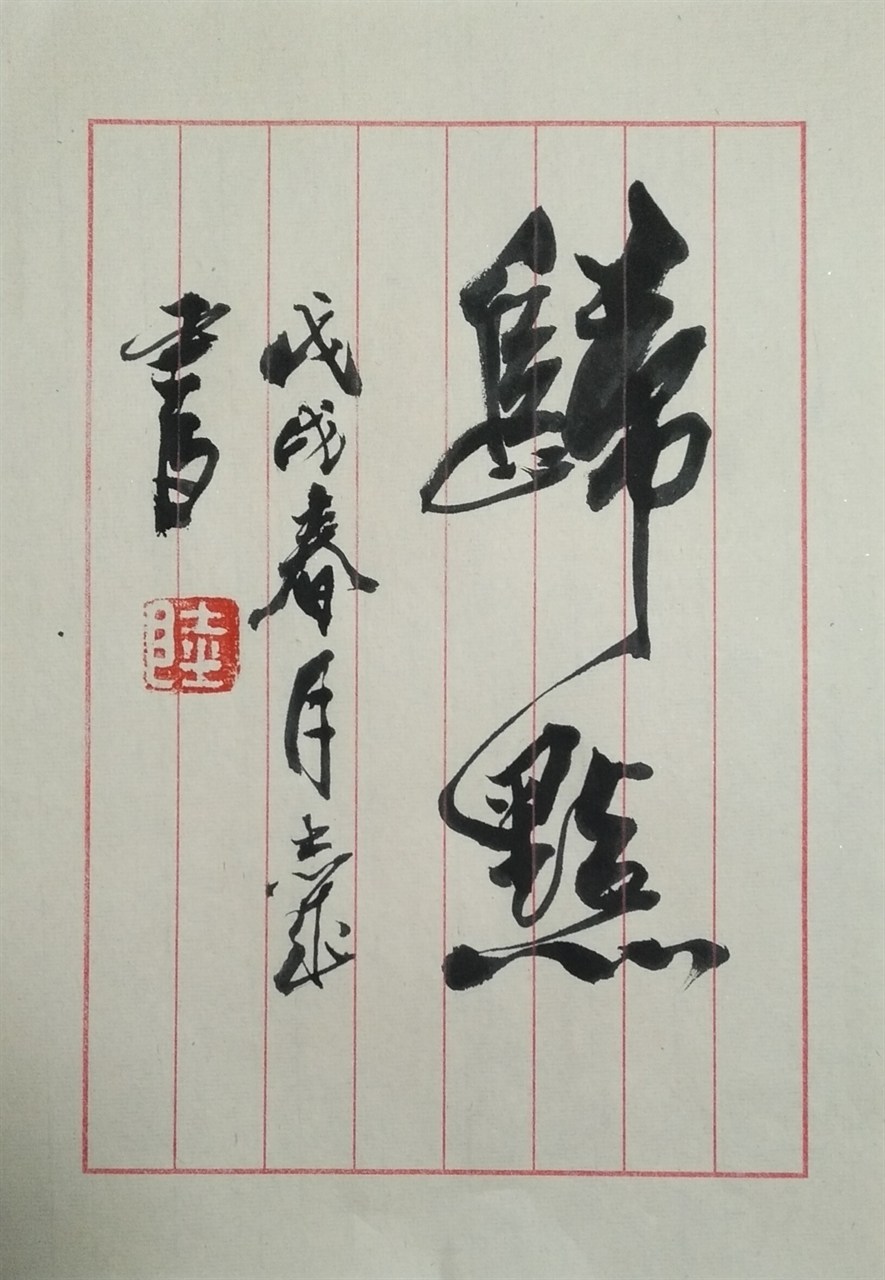 歸點
戊戌春月志
書